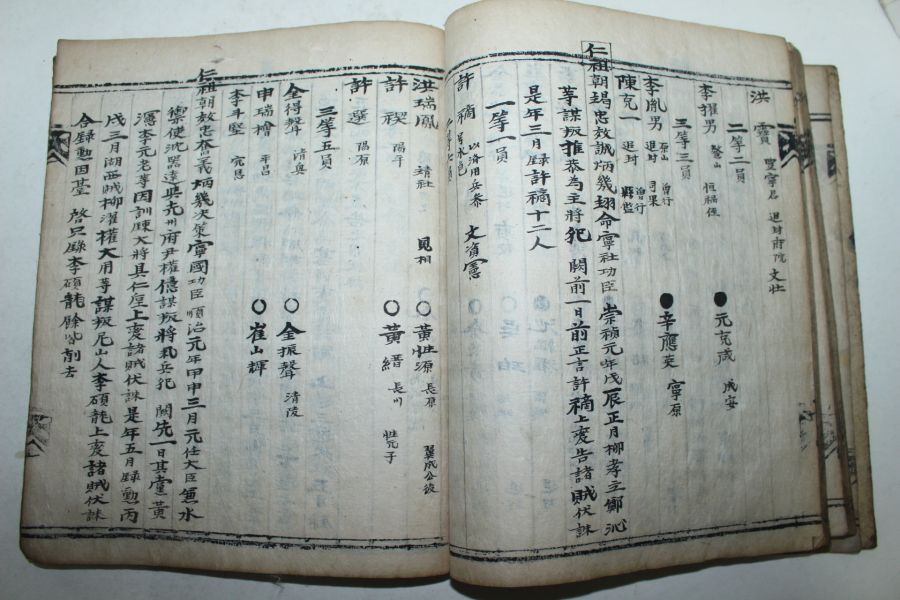 洪霙 聖寧君 追封府院 文壯
二等二員
李擢男 鰲山 恒福侄 ● 元克咸 成安
三等三員
李胤男 原山 追封 曾行司果 ● 辛應英 寧原
陳克一 追封 曾行縣監
仁祖朝竭忠效誠炳幾翊命寧社功臣 崇禎元年戊辰正月柳孝立鄭沁
等謀叛推恭為主將犯 闕前一日前正言許𥛚上變告諸賊伏誅
是年三月錄許𥛚十二人
一等一員
許𥛚 以済用兵 文資憲
洪瑞鳳 靖社 見相 ○ 黃性源 長原 翼成公後
許禊 陽平 ○ 黃縉 長川 性元子
許選 陽原
三等五員
全得聲 清奥 ○ 全振聲 清陵
申瑞檜 平昌 ○ 崔山輝
李斗堅 完恩
仁祖朝效忠奮義炳幾決策寧國功臣 順治元年甲申三月元任大臣無水
禦使沈器遠與光州府尹權億謀叛將兵犯 闕先一日其黨黃
瀗李元老等因訓鍊大將具仁垕上變諸賊伏誅 是年五月錄勳丙
戌三月湖西賊柳濯權大用等謀叛尼山人李碩龍上變諸賊伏誅
合錄勳因臺 啓只錄李碩龍餘皆削去